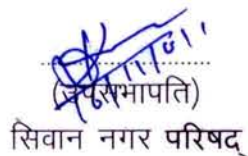 (उपसभापति)
सिवान नगर परिषद्